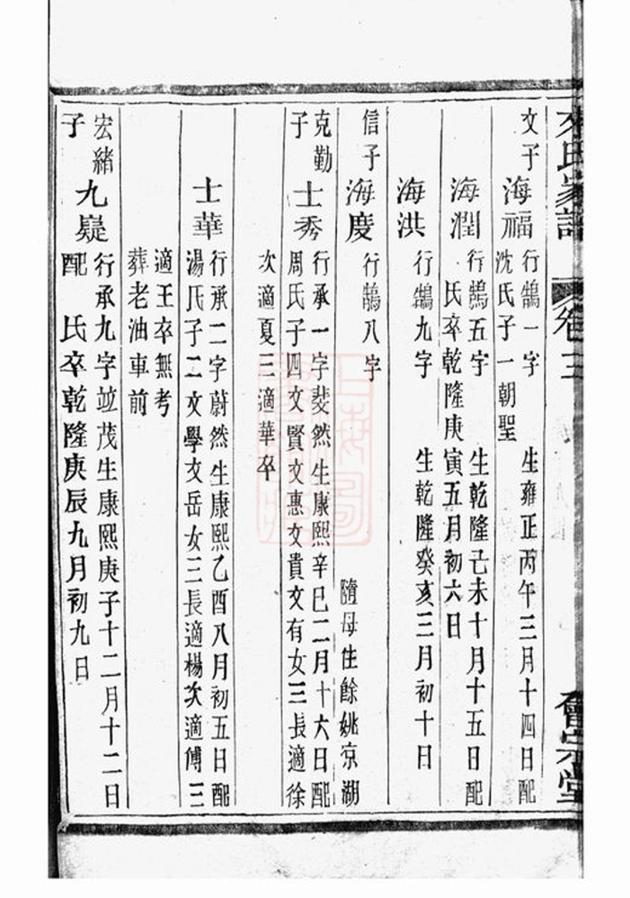 氏家譜
卷三
會宗堂
文子
海福
行鵠一字　生雍正丙午三月十四日配
沈氏子一朝聖
海潤
行鵠五字　生乾隆己未十月十五日配
氏卒乾隆庚寅五月初六日
海洪
行鵠九字　生乾隆癸亥三月初十日
信子
海慶
行鵠八字　隨母住餘姚凉湖
克勤子
士秀
行承一字斐然生康熙辛巳二月十六日配
周氏子四文賢文惠文貴文有女三長適徐
次適夏三適華卒
士華
行承二字蔚然生康熙乙酉八月初五日配
湯氏子二文學文岳女三長適楊次適傅三
適王卒無考
葬老油車前
宏緒子
九嶷
行承九字並茂生康熙庚子十二月十二日
配　氏卒乾隆庚辰九月初九日